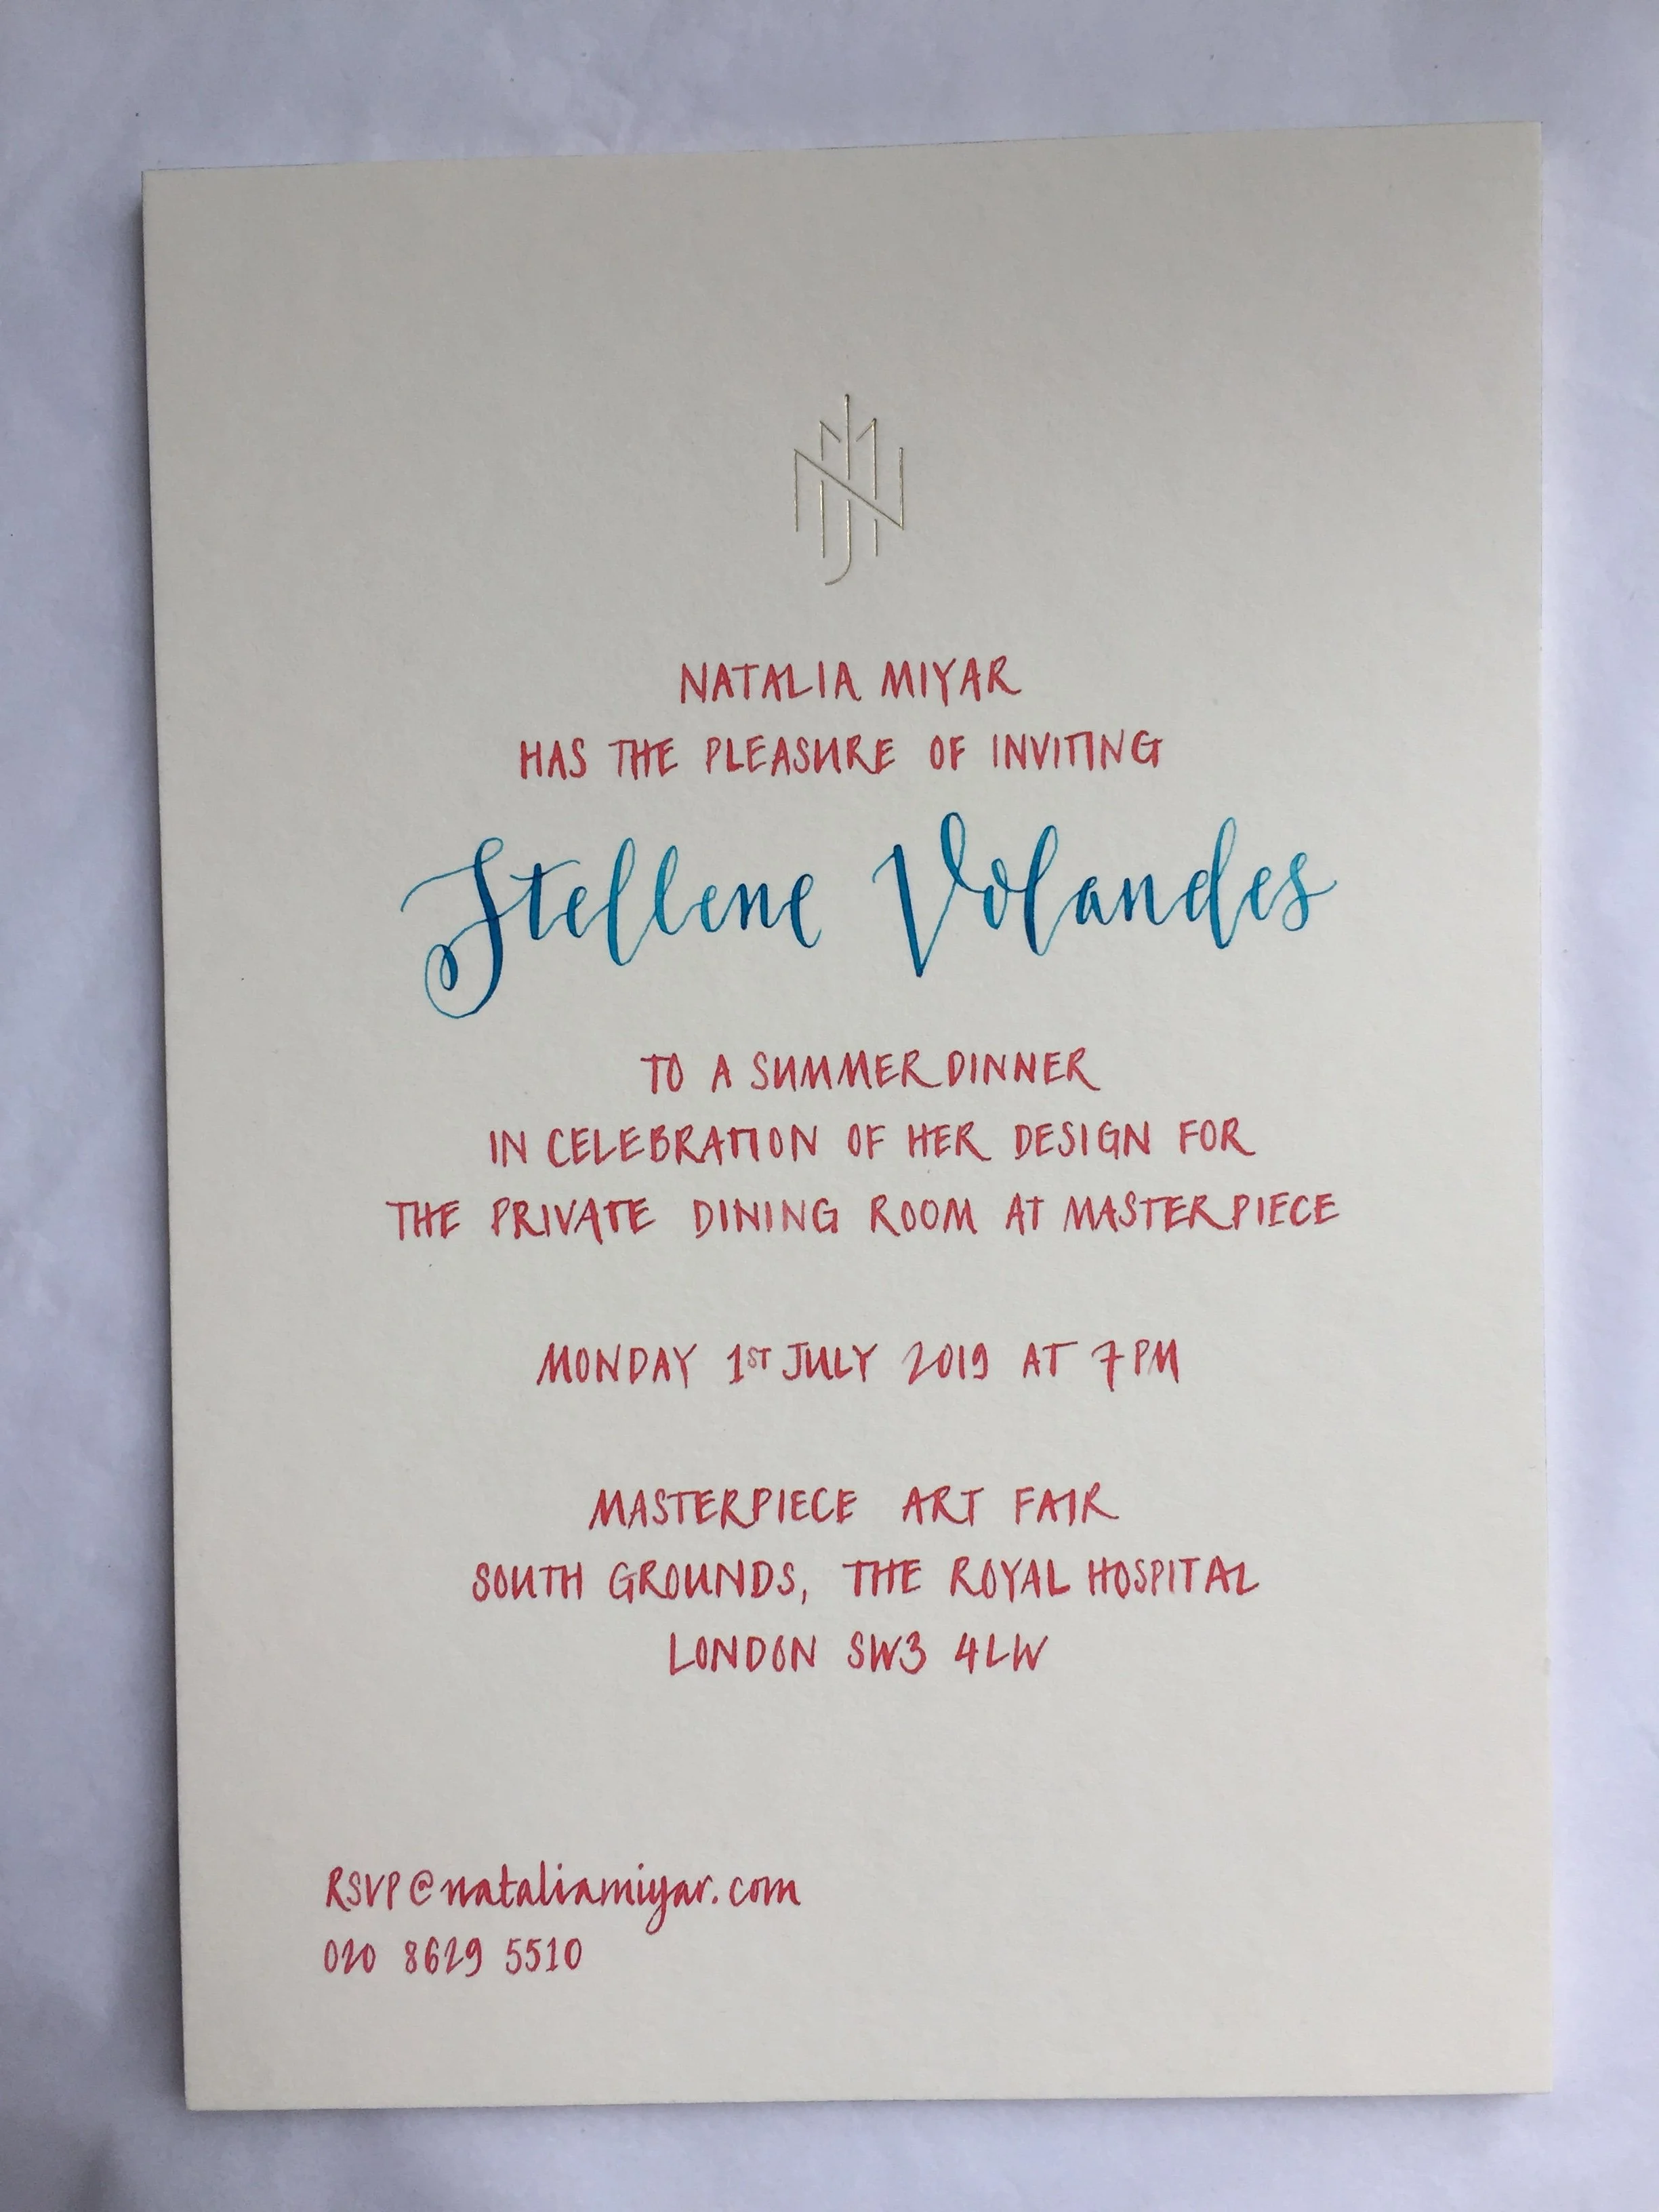 NATALIA MIYAR
HAS THE PLEASURE OF INVITING
Stellene Volandes
TO A SUMMER DINNER
IN CELEBRATION OF HER DESIGN FOR
THE PRIVATE DINING ROOM AT MASTERPIECE
MONDAY 1ST JULY 2019 AT 7PM
MASTERPIECE ART FAIR
SOUTH GROUNDS, THE ROYAL HOSPITAL
LONDON SW3 4LW
RSVP@nataliamiyar.com
020 8629 5510